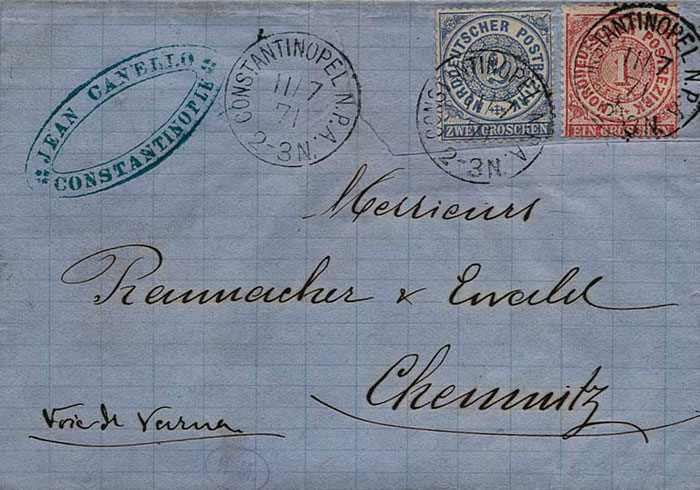 JEAN CANELLO
CONSTANTINOPLE
CONSTANTINOPEL N.P.A.
11/7
71
2-3N.
NORDDEUTSCHER POSTBEZIRK
ZWEI GROSCHEN
CONSTANTINOPEL N.P.A.
2-3N.
NORDDEUTSCHER POSTBEZIRK
1
EIN GROSCHEN
CONSTANTINOPEL N.P.A.
11/7
71
Messieurs
Raumacher & Ewald
Chemnitz
Voie de Varna